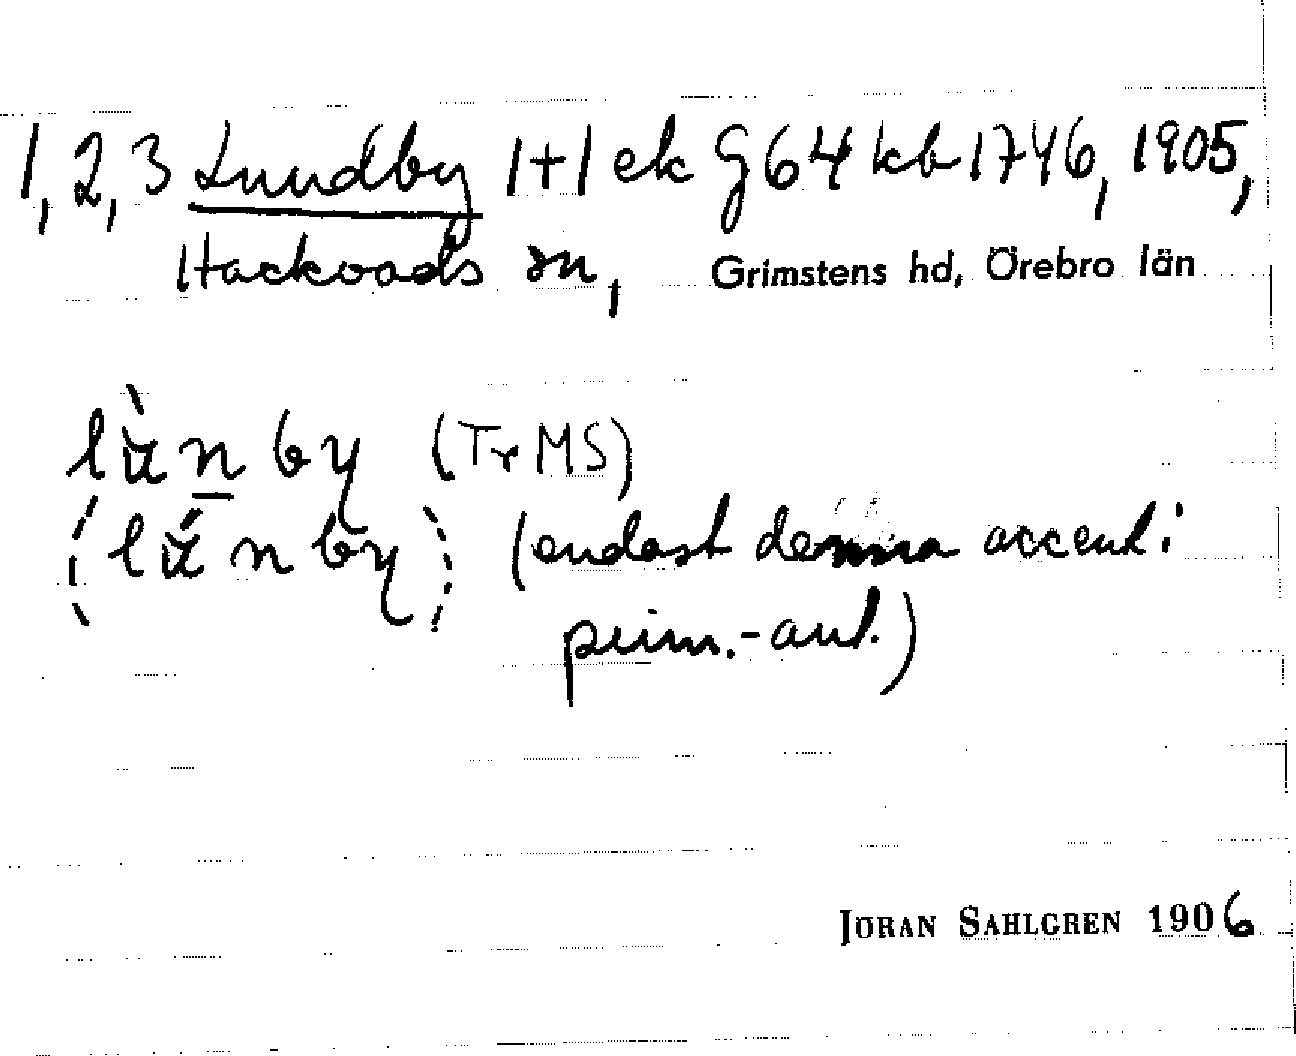 1, 2, 3 Lundby 1+1 ek G64 kb 1746, 1905,
Hackvads sn, Grimstens hd, Örebro län
lùn by (Tr MS)
(lún by) (endast denna accent i
prim.-ant.)
JÖRAN SAHLGREN 1906